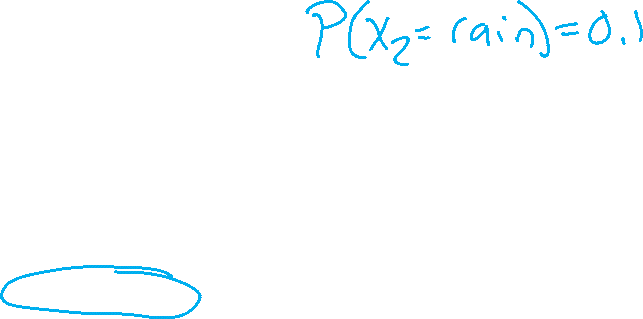 P(x₂=rain)=0.1